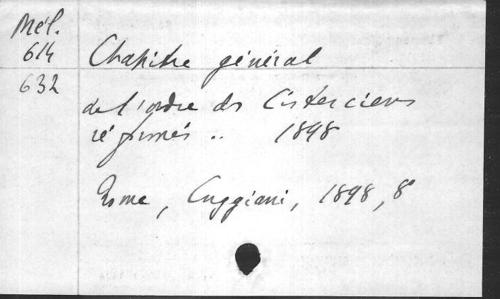 Mél.
614
632
Chapitre général
de l'ordre des Cisterciens
réformés .. 1898
Rome, Cuggiani, 1898, 8°